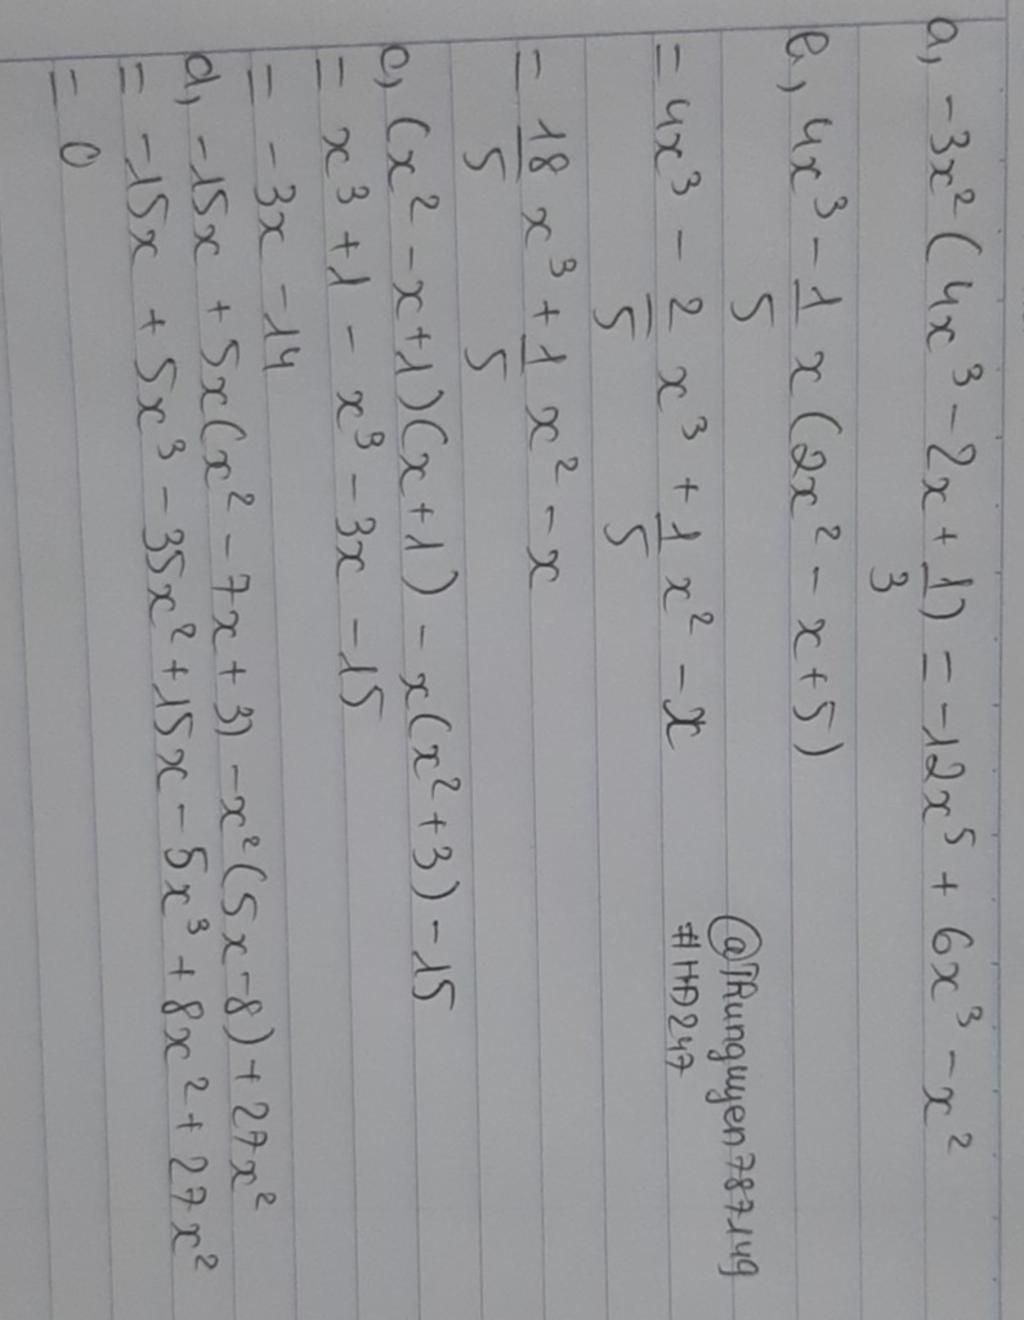 a, -3x² (4x³ - 2x + 1/3) = -12x⁵ + 6x³ - x²
b, 4x³ - 1/5 x (2x² - x + 5)
= 4x³ - 2/5 x³ + 1/5 x² - x
= 18/5 x³ + 1/5 x² - x
@Thunguyen787149
#HĐ247
c, (x² - x + 1)(x + 1) - x(x² + 3) - 15
= x³ + 1 - x³ - 3x - 15
= -3x - 14
d, -15x + 5x(x² - 7x + 3) - x²(5x - 8) + 27x²
= -15x + 5x³ - 35x² + 15x - 5x³ + 8x² + 27x²
= 0